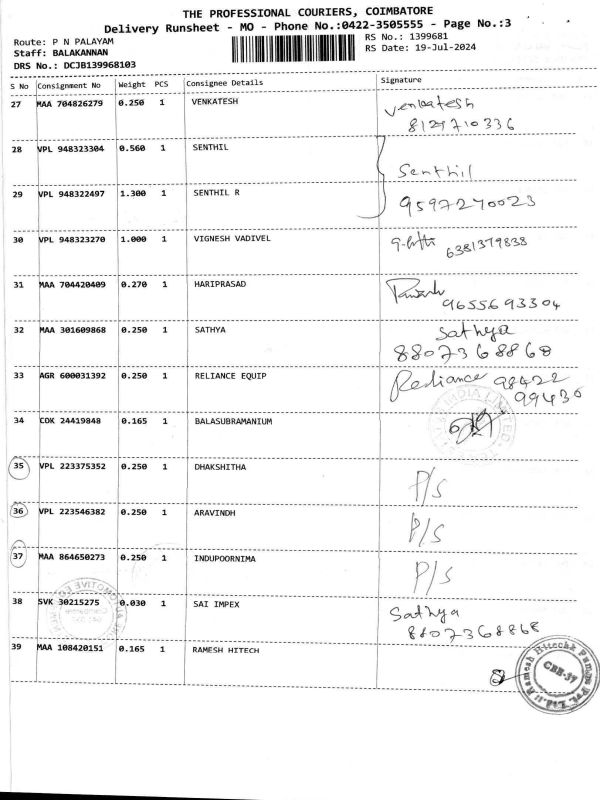 THE PROFESSIONAL COURIERS, COIMBATORE
Delivery Runsheet - MO - Phone No.:0422-3505555 - Page No.:3
Route: P N PALAYAM
RS No.: 1399681
Staff: BALAKANNAN
RS Date: 19-Jul-2024
DRS No.: DCJB139968103
S No Consignment No Weight PCS Consignee Details Signature
27 MAA 704826279 0.250 1 VENKATESH venkatesh
8129710336
28 VPL 948323304 0.560 1 SENTHIL Senthil
29 VPL 948322497 1.300 1 SENTHIL R 9597270023
30 VPL 948323270 1.000 1 VIGNESH VADIVEL 6381379838
31 MAA 704420409 0.270 1 HARIPRASAD
9655693304
32 MAA 301609868 0.250 1 SATHYA Sathya
8807368868
33 AGR 600031392 0.250 1 RELIANCE EQUIP Reliance 98422
99436
34 COK 24419848 0.165 1 BALASUBRAMANIUM
35 VPL 223375352 0.250 1 DHAKSHITHA P/S
36 VPL 223546382 0.250 1 ARAVINDH P/S
37 MAA 864650273 0.250 1 INDUPOORNIMA P/S
38 SVK 30215275 0.030 1 SAI IMPEX Sathya
8807368868
39 MAA 108420151 0.165 1 RAMESH HITECH
Ramesh Hitech Pumps Pvt. Ltd.
CBE-37